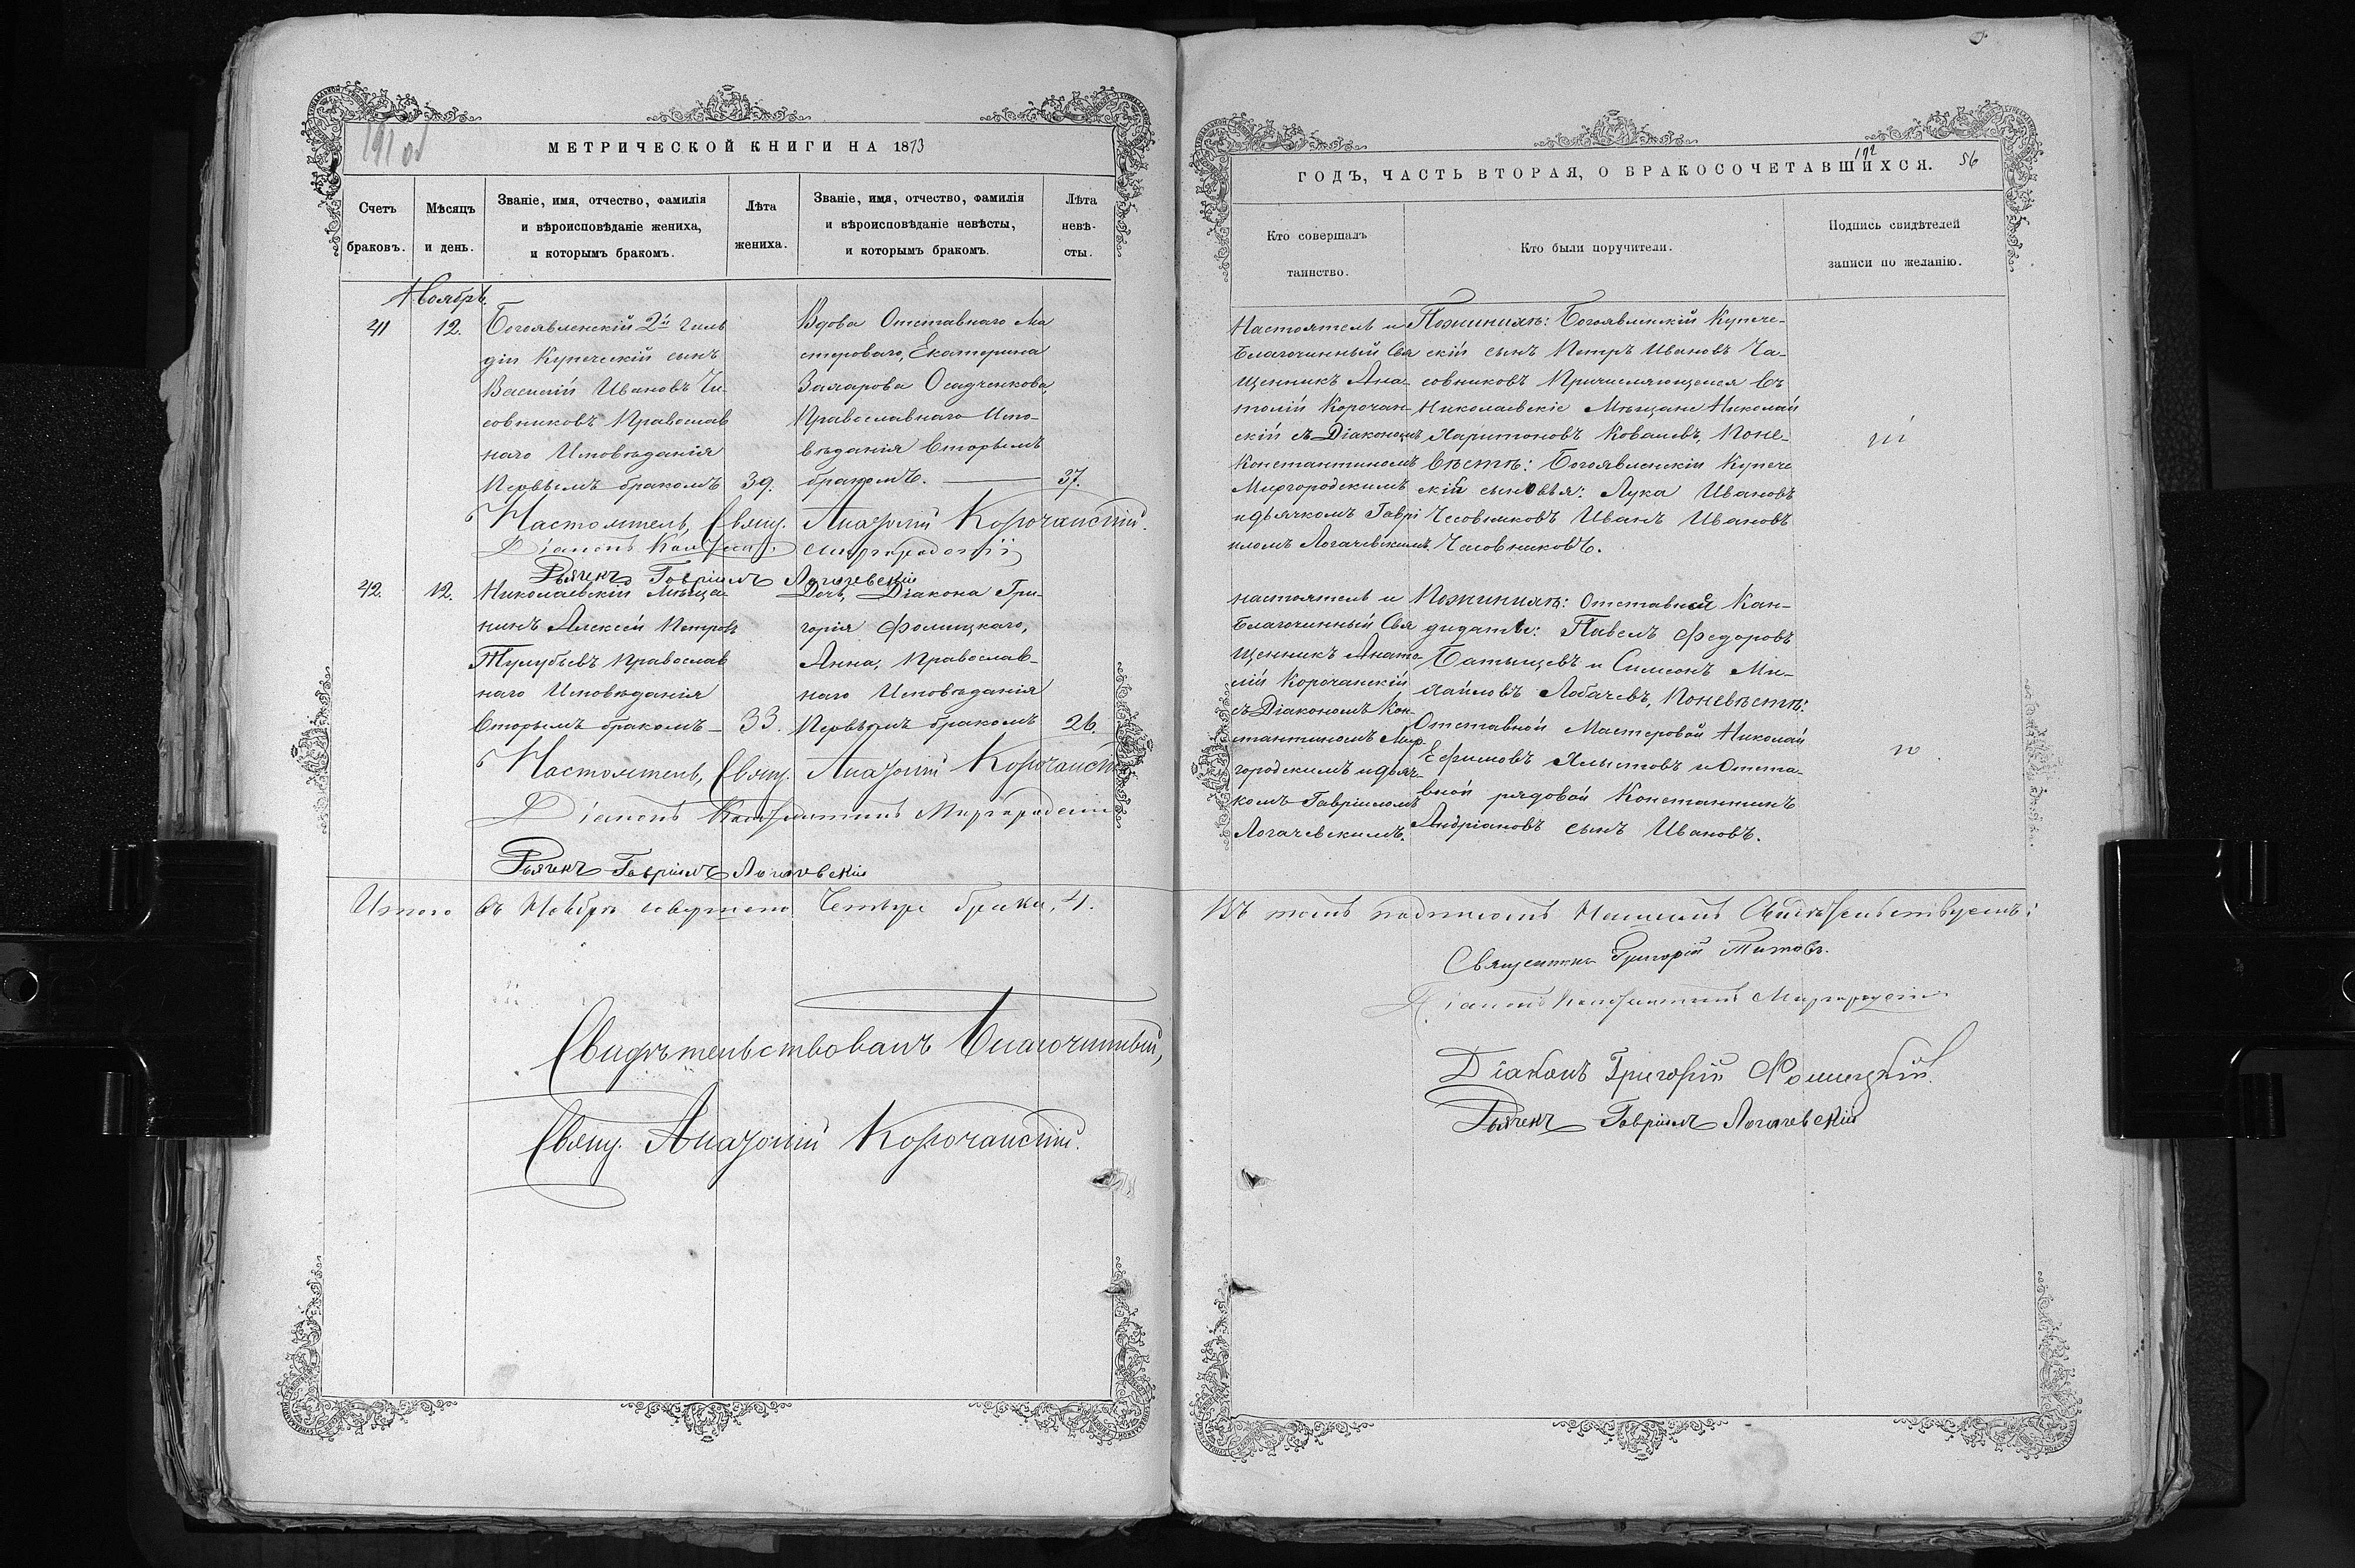 191 об
МЕТРИЧЕСКОЙ КНИГИ НА 1873
Счетъ браковъ.
Мѣсяцъ и день.
Званіе, имя, отчество, фамилія
и вѣроисповѣданіе жениха,
и которымъ бракомъ.
Лѣта жениха.
Званіе, имя, отчество, фамилія
и вѣроисповѣданіе невѣсты,
и которымъ бракомъ.
Лѣта невѣ-
сты.
Ноябрь.
41 12.
Богоявленскій 2й гиль
діи Купеческій сынъ
Василій Ивановъ Ча-
совниковъ Православ
наго Исповѣданія
Первымъ бракомъ 39.
Вдова Отставнаго Ма
стероваго, Екатерина
Захарова Осадченкова,
Православнаго Испо-
вѣданія вторымъ
бракомъ. 37.
Настоятель, Свящ. Анатолій Корочанскій.
Діаконъ Конст. Миргородскій
Дьячекъ Гавріилъ Логачевскій
42. 12.
Николаевскій Мѣща-
нинъ Алексѣй Петровъ
Тулубьевъ Православ
наго Исповѣданія
Вторымъ бракомъ 33.
Дочь, Діакона Гри-
горія Фомицкаго,
Анна, Православ-
наго Исповѣданія
Первымъ бракомъ 26.
Настоятель, Свящ. Анатолій Корочанскій
Діаконъ Константинъ Миргородскій
Дьячекъ Гавріилъ Логачевскій
Итого въ Ноябрѣ совершено Четыре брака, 4.
Свидѣтельствовалъ Благочинный,
Свящ. Анатолій Корочанскій.
192 56
ГОДЪ, ЧАСТЬ ВТОРАЯ, О БРАКОСОЧЕТАВШИХСЯ.
Кто совершалъ
таинство.
Кто были поручители.
Подпись свидѣтелей
записи по желанію.
Настоятель и
Благочинный Свя
щенникъ Ана-
толій Корочан-
скій съ Діакономъ
Константиномъ
Миргородскимъ
и дьячкомъ Гаврі
иломъ Логачевскимъ.
Поженихѣ: Богоявленскій Купече-
скій сынъ Петръ Ивановъ Ча-
совниковъ Причисляющейся въ
Николаевскіе Мѣщане Николай
Харитоновъ Ковалевъ, Поне-
вѣстѣ: Богоявленскіи Купече
скій сыновья: Лука Ивановъ
Часовниковъ Иванъ Ивановъ
Часовниковъ.
настоятель и
Благочинный Свя
щенникъ Анато
лій Корочанскій
съ Діакономъ Кон-
стантиномъ Мир-
городскимъ и дьяч-
комъ Гавріиломъ
Логачевскимъ.
Поженихѣ: Отставной Кан-
дидаты: Павелъ Федоровъ
Батыщевъ и Симеонъ Ми-
хайловъ Лобачевъ, Поневѣстѣ:
Отставной Мастеровой Николай
Ефимовъ Хлыстовъ и Отста-
вной рядовой Константинъ
Андріановъ сынъ Ивановъ.
Въ томъ подписомъ Нашимъ Свидѣтельствуемъ:
Священникъ Григорій Титовъ.
Діаконъ Константинъ Миргородскій
Діаконъ Григорій Фомицкій.
Дьячекъ Гавріилъ Логачевскій